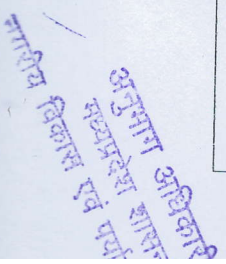 अनुभाग अधिकारी
मध्यप्रदेश शासन
नगरीय विकास एवं